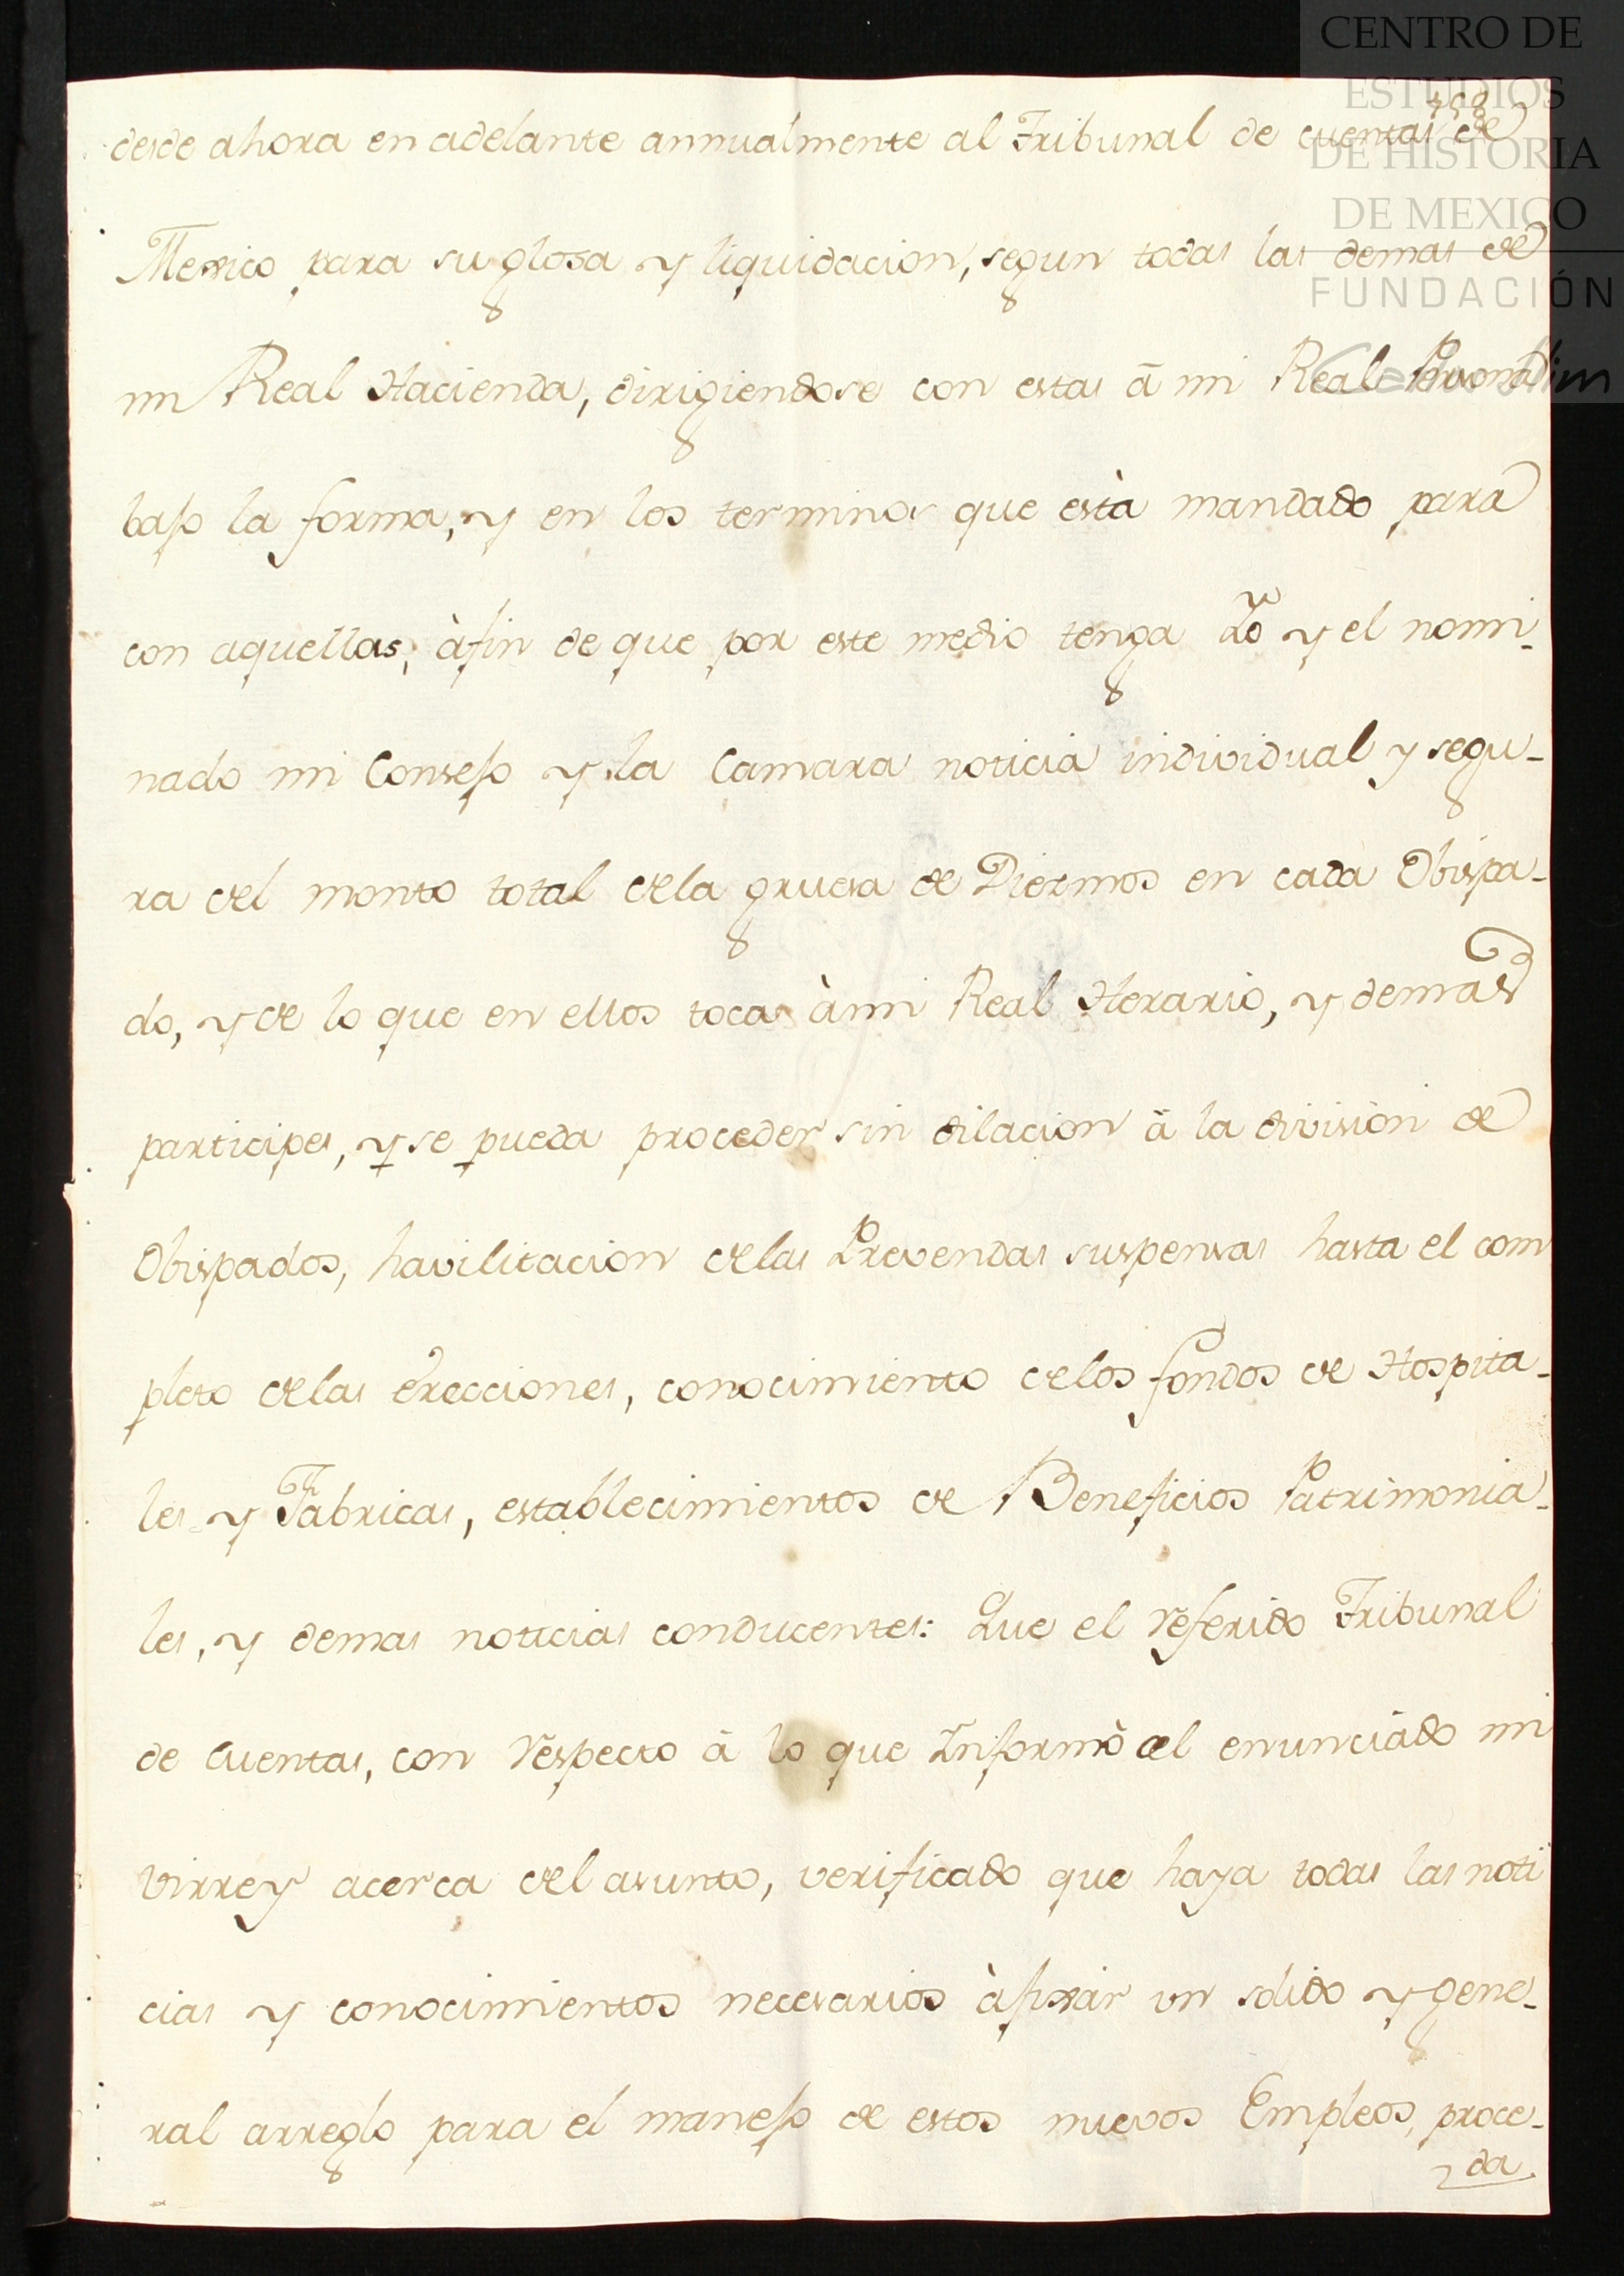 desde ahora en adelante annualmente al Tribunal de cuentas de
Mexico para su glosa y liquidacion, segun todas las demas de
mi Real Hacienda, dirigiendose con estas à mi Real Persona
bajo la forma, y en los terminos que està mandado para
con aquellas, àfin de que por este medio tenga Yo y el nomi-
nado mi Consejo y la Camara noticia individual y segu-
ra del monto total dela gruesa de Diezmos en cada Obispa-
do, y de lo que en ellos toca àmi Real Herario, y demas
participes, y se pueda proceder sin dilacion à la division de
Obispados, havilitacion delas Prevendas suspensas hasta el com
pleto delas erecciones, conocimiento delos fondos de Hospita-
les y Fabricas, establecimientos de Beneficios Patrimonia-
les, y demas noticias conducentes: Que el referido Tribunal
de Cuentas, con respecto à lo que Informò al enunciado mi
Virrey acerca del asunto, verificado que haya todas las noti
cias y conocimientos necesarios àfixar un solido y gene-
ral arreglo para el manejo de estos nuevos Empleos, proce-
da
CENTRO DE
ESTUDIOS
DE HISTORIA
DE MEXICO
FUNDACIÓN